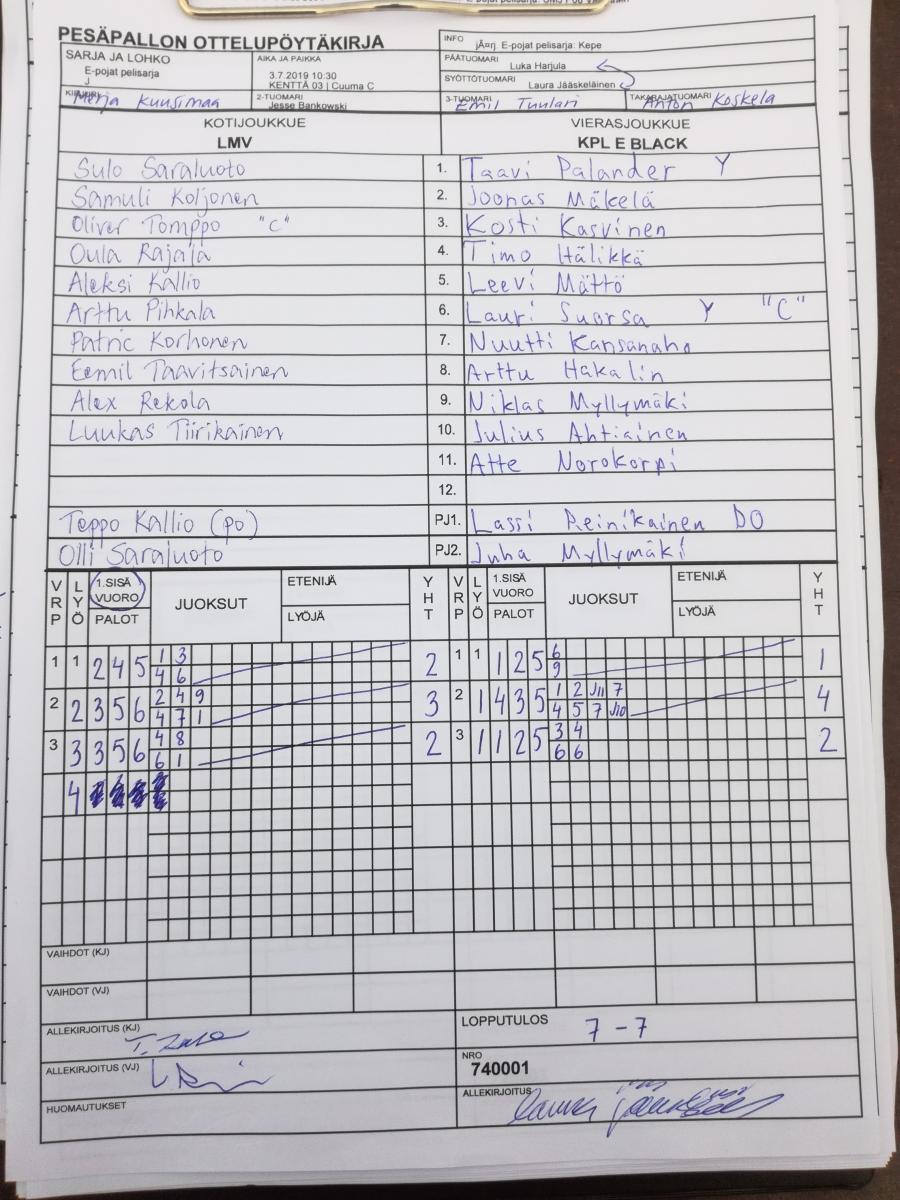 PESÄPALLON OTTELUPÖYTÄKIRJA
INFO jÃ¤rj. E-pojat pelisarja: Kepe
SARJA JA LOHKO
E-pojat pelisarja
J
AIKA JA PAIKKA
3.7.2019 10:30
KENTTÄ 03 | Cuuma C
PÄÄTUOMARI Luka Harjula
SYÖTTÖTUOMARI Laura Jääskeläinen
KIRJURI Merja Kuusimaa
2-TUOMARI Jesse Bankowski
3-TUOMARI Emil Tuulari
TAKARAJATUOMARI Anton Koskela
KOTIJOUKKUE VIERASJOUKKUE
LMV KPL E BLACK
Sulo Saraluoto 1. Taavi Palander Y
Samuli Koljonen 2. Joonas Mäkelä
Oliver Tomppo "C" 3. Kosti Kasvinen
Oula Rajala 4. Timo Hälikkä
Aleksi Kallio 5. Leevi Mättö
Arttu Pihkala 6. Lauri Suorsa Y "C"
Patric Korhonen 7. Nuutti Kansanaho
Eemil Taavitsainen 8. Arttu Hakalin
Alex Rekola 9. Niklas Myllymäki
Luukas Tiirikainen 10. Julius Ahtiainen
11. Atte Norokorpi
12.
Teppo Kallio (po) PJ1. Lassi Reinikainen DO
Olli Sarajuoto PJ2. Juha Myllymäki
VRP LYÖ 1.SISÄ VUORO PALOT JUOKSUT ETENIJÄ LYÖJÄ YHT VRP LYÖ 1.SISÄ VUORO PALOT JUOKSUT ETENIJÄ LYÖJÄ YHT
1 1 2 4 5 1 3 2 1 1 1 2 5 6 1
4 6 9
2 2 3 5 6 2 4 9 3 2 1 4 3 5 1 2 J11 7 4
4 7 1 4 5 7 J10
3 3 3 5 6 4 8 2 3 1 1 2 5 3 4 2
6 1 6 6
4
VAIHDOT (KJ)
VAIHDOT (VJ)
ALLEKIRJOITUS (KJ)
LOPPUTULOS 7-7
ALLEKIRJOITUS (VJ)
NRO
740001
HUOMAUTUKSET
ALLEKIRJOITUS